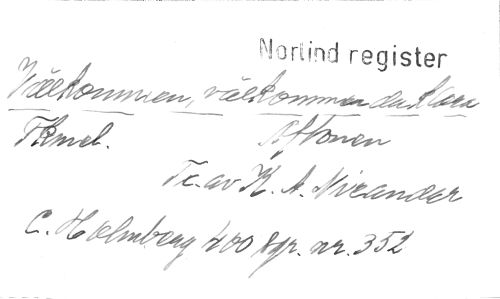 Norlind register
Välkommen, välkommen du klara
Himmel. Aftonen
Tr. av K. A. Nicander
C. Holmberg 400 sgr. nr. 352